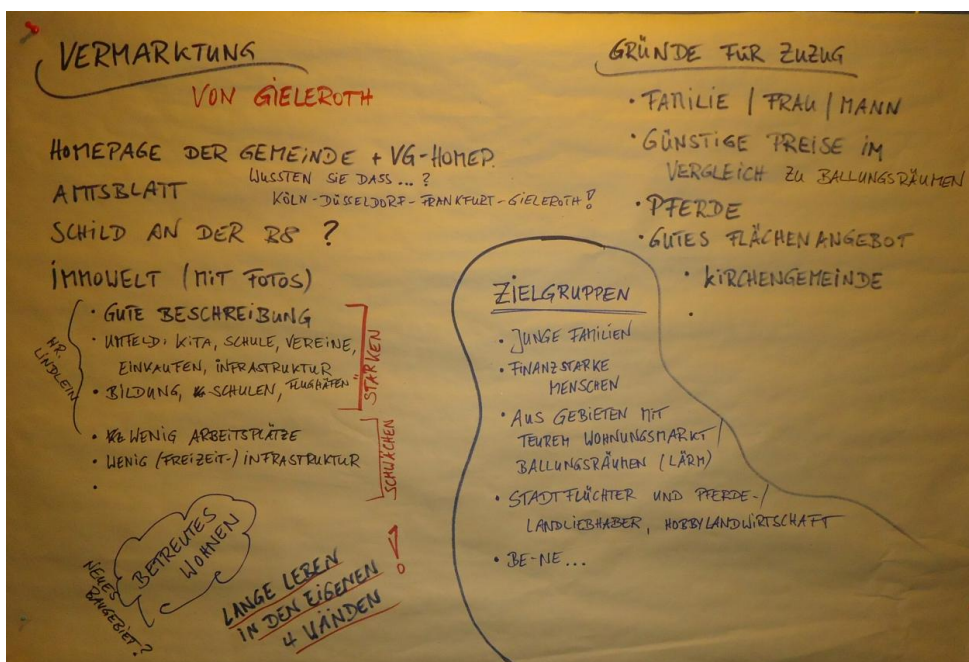 VERMARKTUNG
VON GIELEROTH
HOMEPAGE DER GEMEINDE + VG-HOMEP.
WUSSTEN SIE DASS...?
AMTSBLATT
KÖLN-DÜSSELDORF-FRANKFURT-GIELEROTH!
SCHILD AN DER B8 ?
IMMOWELT (MIT FOTOS)
HR. LINDLEIN
• GUTE BESCHREIBUNG
• UMFELD: KITA, SCHULE, VEREINE,
EINKAUFEN, INFRASTRUKTUR
• BILDUNG, SCHULEN, "FLUGHÄFEN"
STÄRKEN
• WENIG ARBEITSPLÄTZE
• WENIG (FREIZEIT-) INFRASTRUKTUR
•
SCHWÄCHEN
BETREUTES
WOHNEN
NEUES
BAUGEBIET?
LANGE LEBEN
IN DEN EIGENEN
4 WÄNDEN!
GRÜNDE FÜR ZUZUG
• FAMILIE / FRAU / MANN
• GÜNSTIGE PREISE IM
VERGLEICH ZU BALLUNGSRÄUMEN
• PFERDE
• GUTES FLÄCHENANGEBOT
• KIRCHENGEMEINDE
•
ZIELGRUPPEN
• JUNGE FAMILIEN
• FINANZSTARKE
MENSCHEN
• AUS GEBIETEN MIT
TEUREM WOHNUNGSMARKT/
BALLUNGSRÄUMEN (LÄRM)
• STADTFLÜCHTER UND PFERDE-/
LANDLIEBHABER, HOBBYLANDWIRTSCHAFT
• BE-NE...